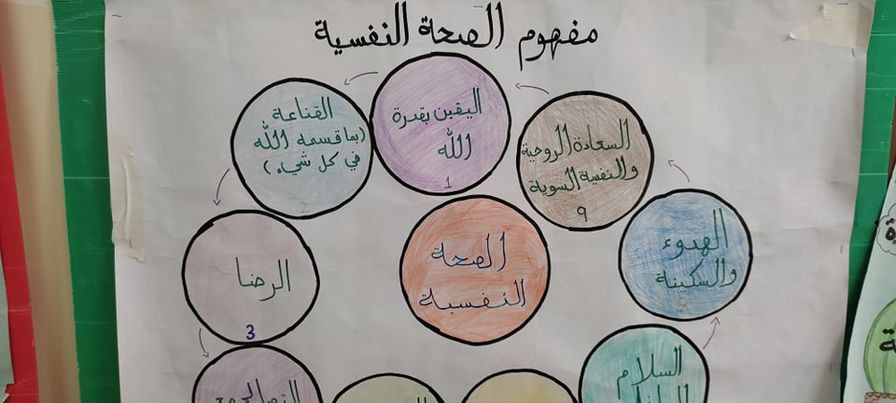 مفهوم الصحة النفسية
اليقين بقدرة
الله
1
القناعة
(بما قسمه الله
في كل شيء)
2
الرضا
3
السلام
الهدوء
والسكينة
السعادة الروحية
والنفسية السوية
9
الصحة
النفسية